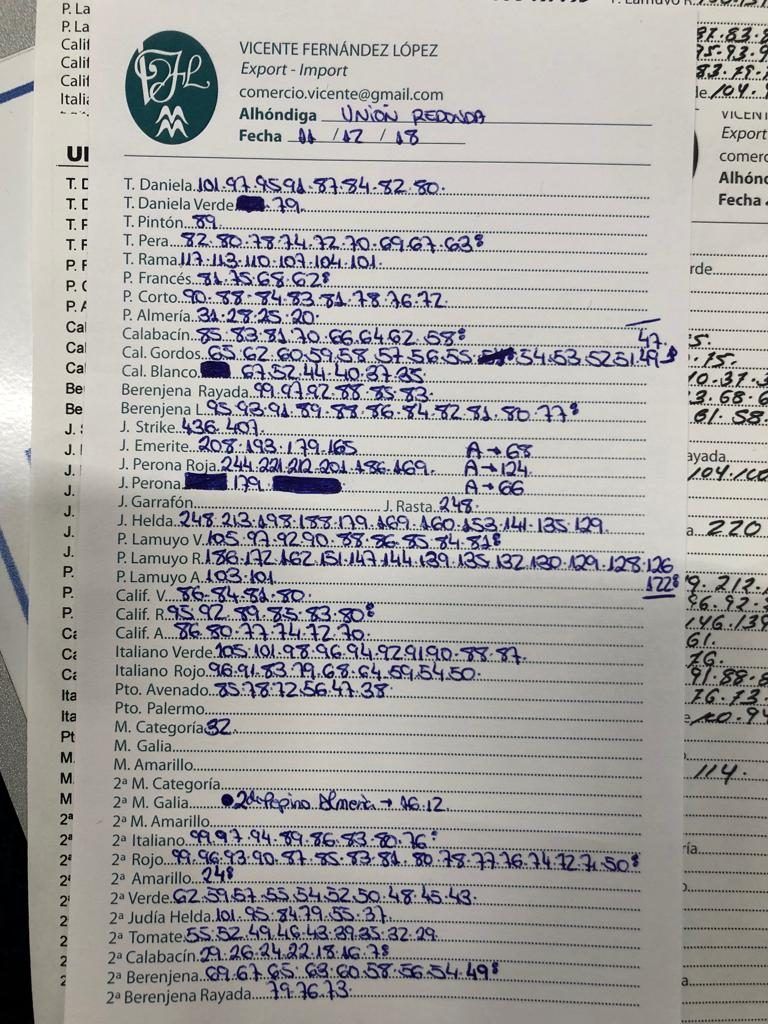 VICENTE FERNÁNDEZ LÓPEZ
Export - Import
comercio.vicente@gmail.com
Alhóndiga UNIÓN REDONDA
Fecha 11 / 12 / 18
T. Daniela 101.97.95.91.87.84.82.80.
T. Daniela Verde .79.
T. Pintón 89
T. Pera 82.80.78.74.72.70.69.67.63
T. Rama 117.113.110.107.104.101
P. Francés 81.75.68.62
P. Corto 90.88.84.83.81.78.76.72
P. Almería 31.28.25.20.
Calabacín 85.83.81.70.66.64.62.58
47
Cal. Gordos 65.62.60.59.58.57.56.55 54.53.52.51.49
Cal. Blanco 67.52.44.40.37.35
Berenjena Rayada 99.97.92.88.85.83.
Berenjena L. 95.93.91.89.88.86.84.82.81.80.77
J. Strike 436.407.
J. Emerite 208.193.179.165 A→68
J. Perona Roja 244.221.212.201.186.169. A→124
J. Perona 179. A→66
J. Garrafón J. Rasta 248.
J. Helda 248.213.198.188.179.169.160.153.141.135.129.
P. Lamuyo V. 105.97.92.90.88.86.85.84.81
P. Lamuyo R. 186.172.162.151.147.144.139.135.132.130.129.128.126
122
P. Lamuyo A. 103.101
Calif. V. 86.84.81.80.
Calif. R. 95.92.89.85.83.80
Calif. A. 86.80.77.74.72.70.
Italiano Verde 105.101.98.96.94.92.91.90.88.87.
Italiano Rojo 96.91.83.79.68.64.59.54.50.
Pto. Avenado 85.78.72.56.47.38.
Pto. Palermo
M. Categoría 32
M. Galia
M. Amarillo
2ª M. Categoría
2ª M. Galia 2ª de Pepino Almería → 16.12.
2ª M. Amarillo
2ª Italiano 99.97.94.89.86.83.80.76
2ª Rojo 99.96.93.90.87.85.83.81.80.78.77.76.74.72.71.50
2ª Amarillo 24
2ª Verde 62.59.57.55.54.52.50.48.45.43.
2ª Judía Helda 101.95.84.79.55.37.
2ª Tomate 55.52.49.46.43.39.35.32.29.
2ª Calabacín 29.26.24.22.18.16.7
2ª Berenjena 69.67.65.63.60.58.56.54.49
2ª Berenjena Rayada 79.76.73.